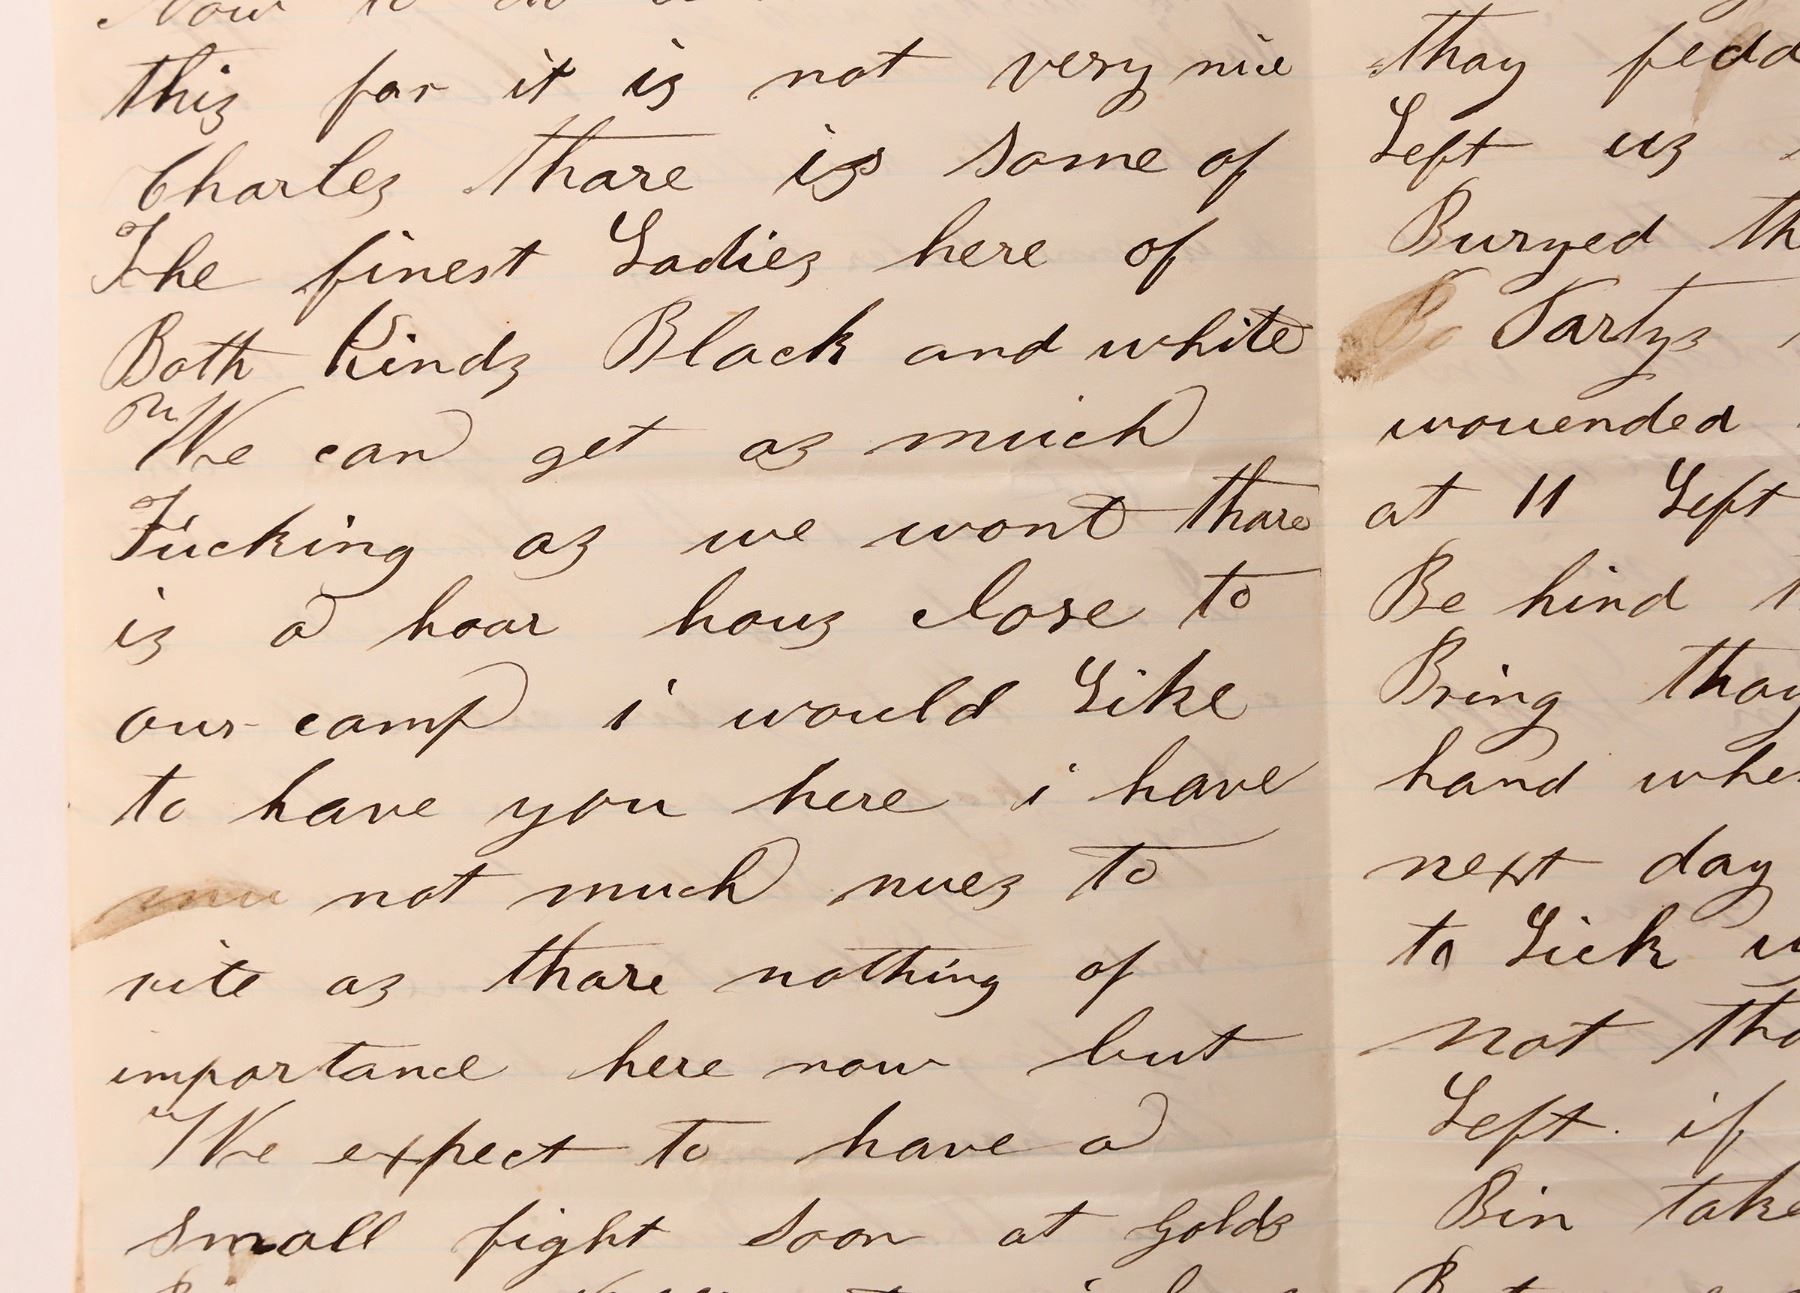 this for it is not very nice
Charles thare is some of
The finest Ladies here of
Both Kinds Black and white
We can get as much
Fucking as we wont thare
is a hoar hous close to
our camp i would Like
to have you here i have
not much nues to
rite as thare nothing of
importance here now but
We expect to have a
small fight soon at Golds
thay fedd
Left us
Buryed th
Partys
wouended
at 11 Left
Be hind
Bring thay
hand whe
next day
to Lick
not tho
Left. if
Bin take